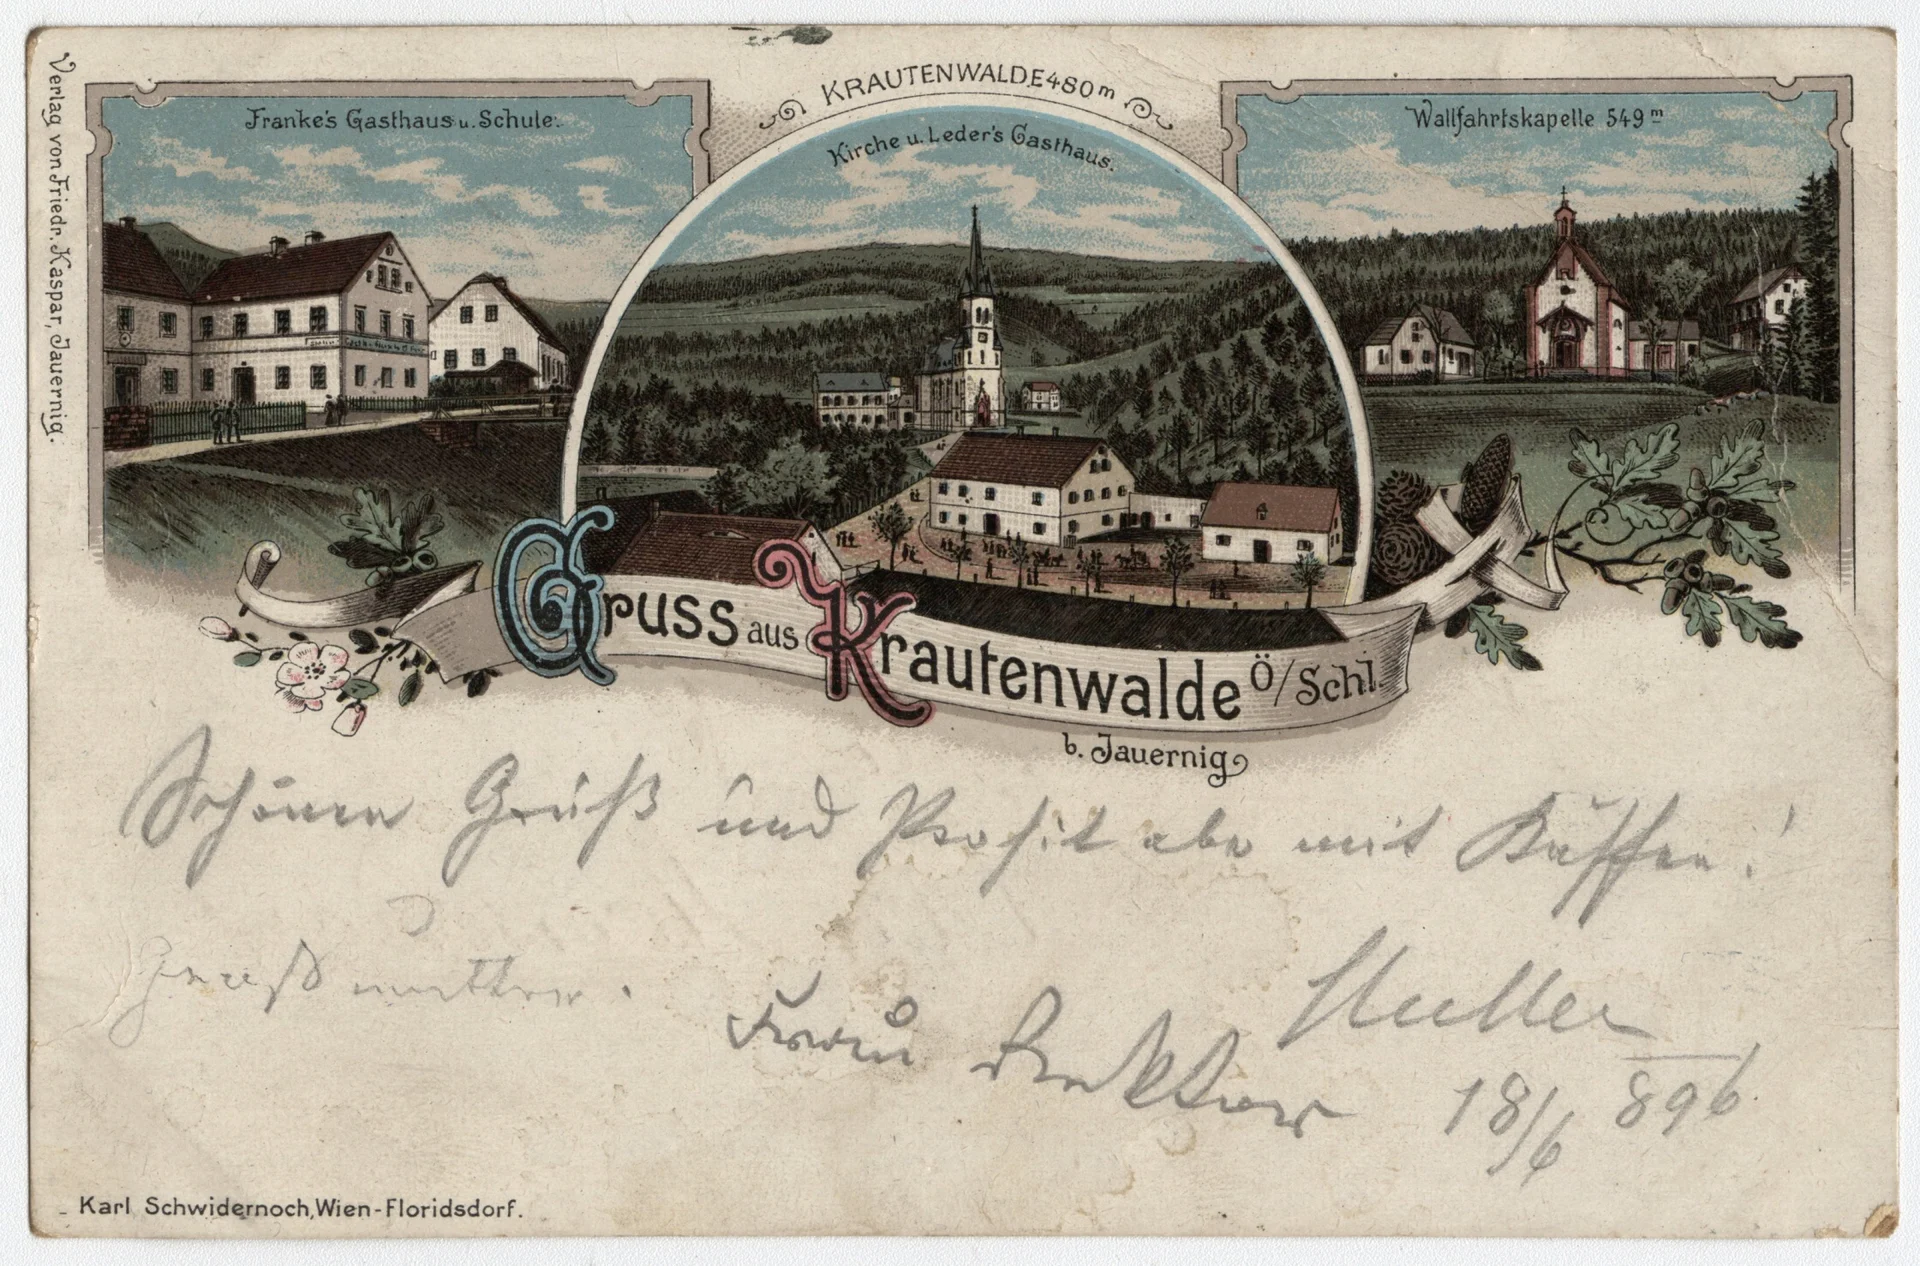 KRAUTENWALDE 480 m
Franke's Gasthaus u. Schule.
Kirche u. Leder's Gasthaus.
Wallfahrtskapelle 549 m
Verlag von Friedr. Kaspar, Jauernig.
Gruss aus Krautenwalde Ö/Schl.
b. Jauernig
Schönen Gruß und Prosit abr mit Kaffee!
Großmutter.
Frau Rektor
18/6 896
Karl Schwidernoch, Wien-Floridsdorf.